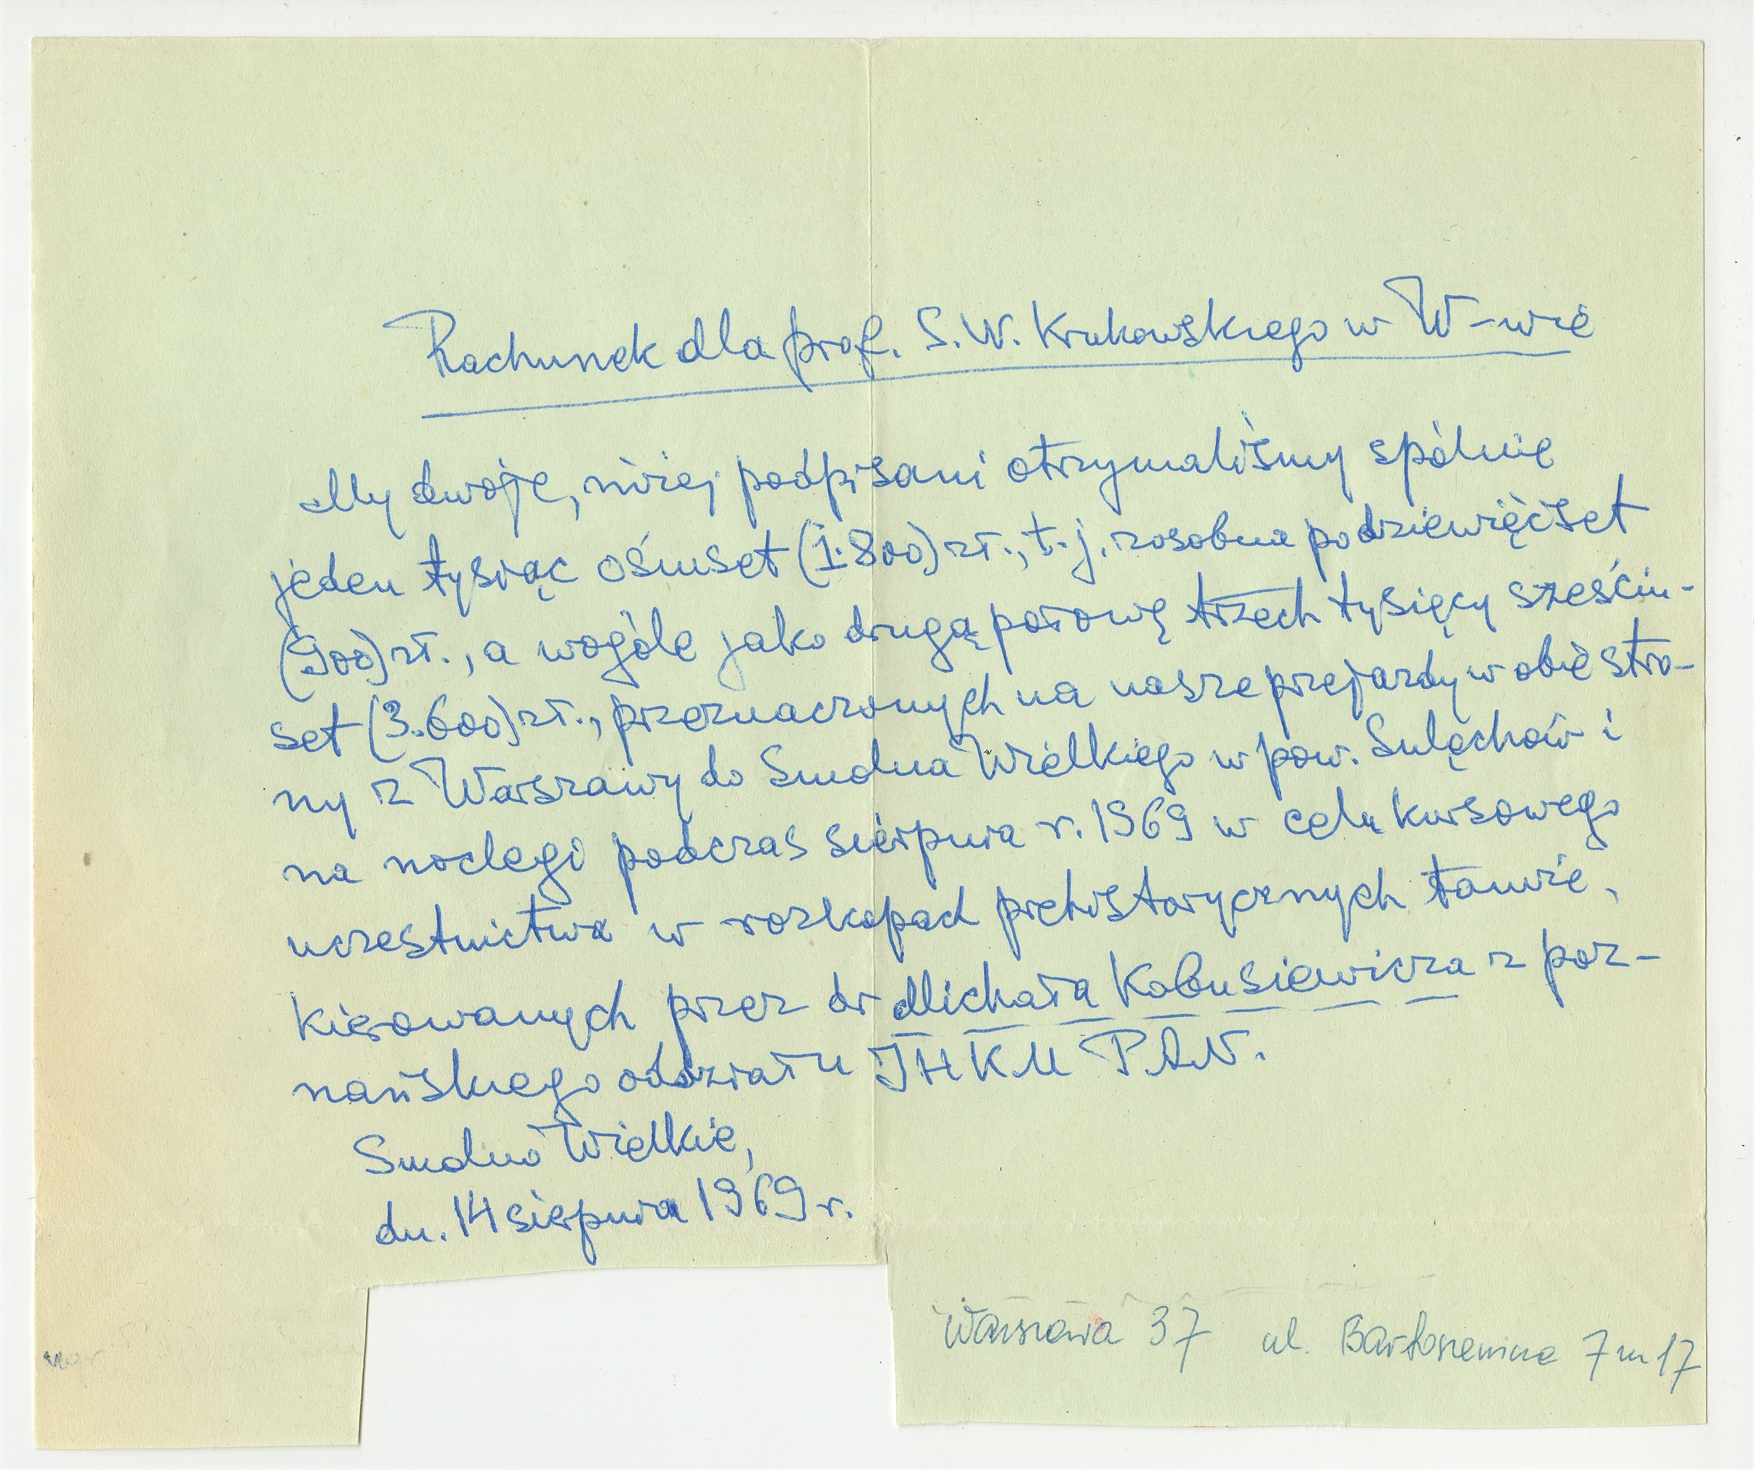 Rachunek dla prof. S.W. Krukowskiego w W-wie
My dwoje, niżej podpisani otrzymaliśmy spólnie
jeden tysiąc ośmset (1.800) zł., t.j. zosobna po dziewięćset
(900) zł., a wogóle jako drugą połowę trzech tysięcy sześćiu-
set (3.600) zł., przeznaczonych na nasze przejazdy w obie stro-
ny z Warszawy do Smolna Wielkiego w pow. Sulęchów i
na noclegi podczas sierpnia r. 1969 w celu kursowego
uczestnictwa w rozkopach prehistorycznych tamże,
kierowanych przez dr Michała Kobusiewicza z poz-
nańskiego oddziału IHKM PAN.
Smolno Wielkie,
dn. 14 sierpnia 1969 r.
Warszawa 37 ul. Bartoszewicza 7 m 17